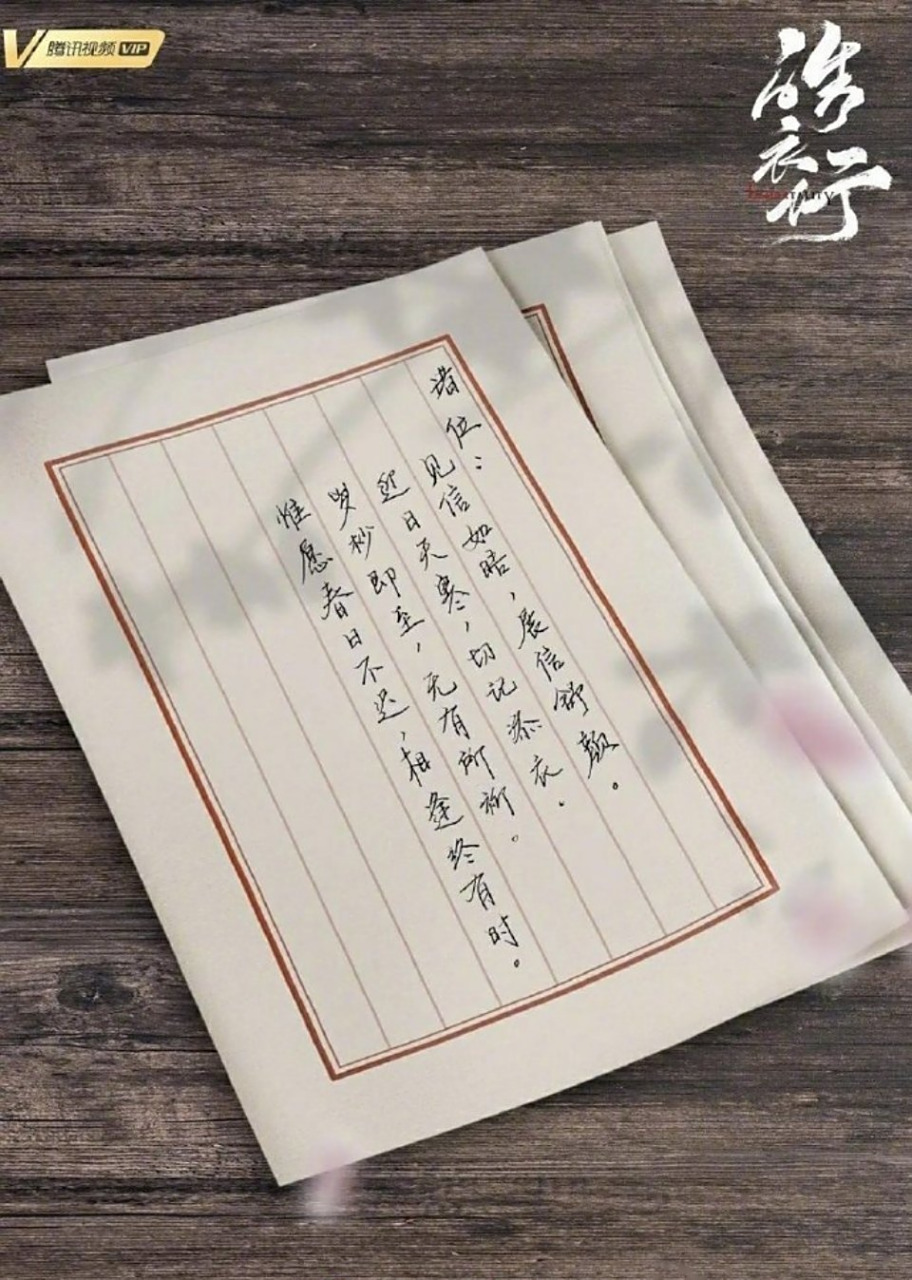 V 腾讯视频 VIP
皓衣行
诸位：
见信如晤，展信舒颜。
近日天寒，切记添衣。
岁杪即至，无有所祈。
惟愿春日不迟，相逢终有时。